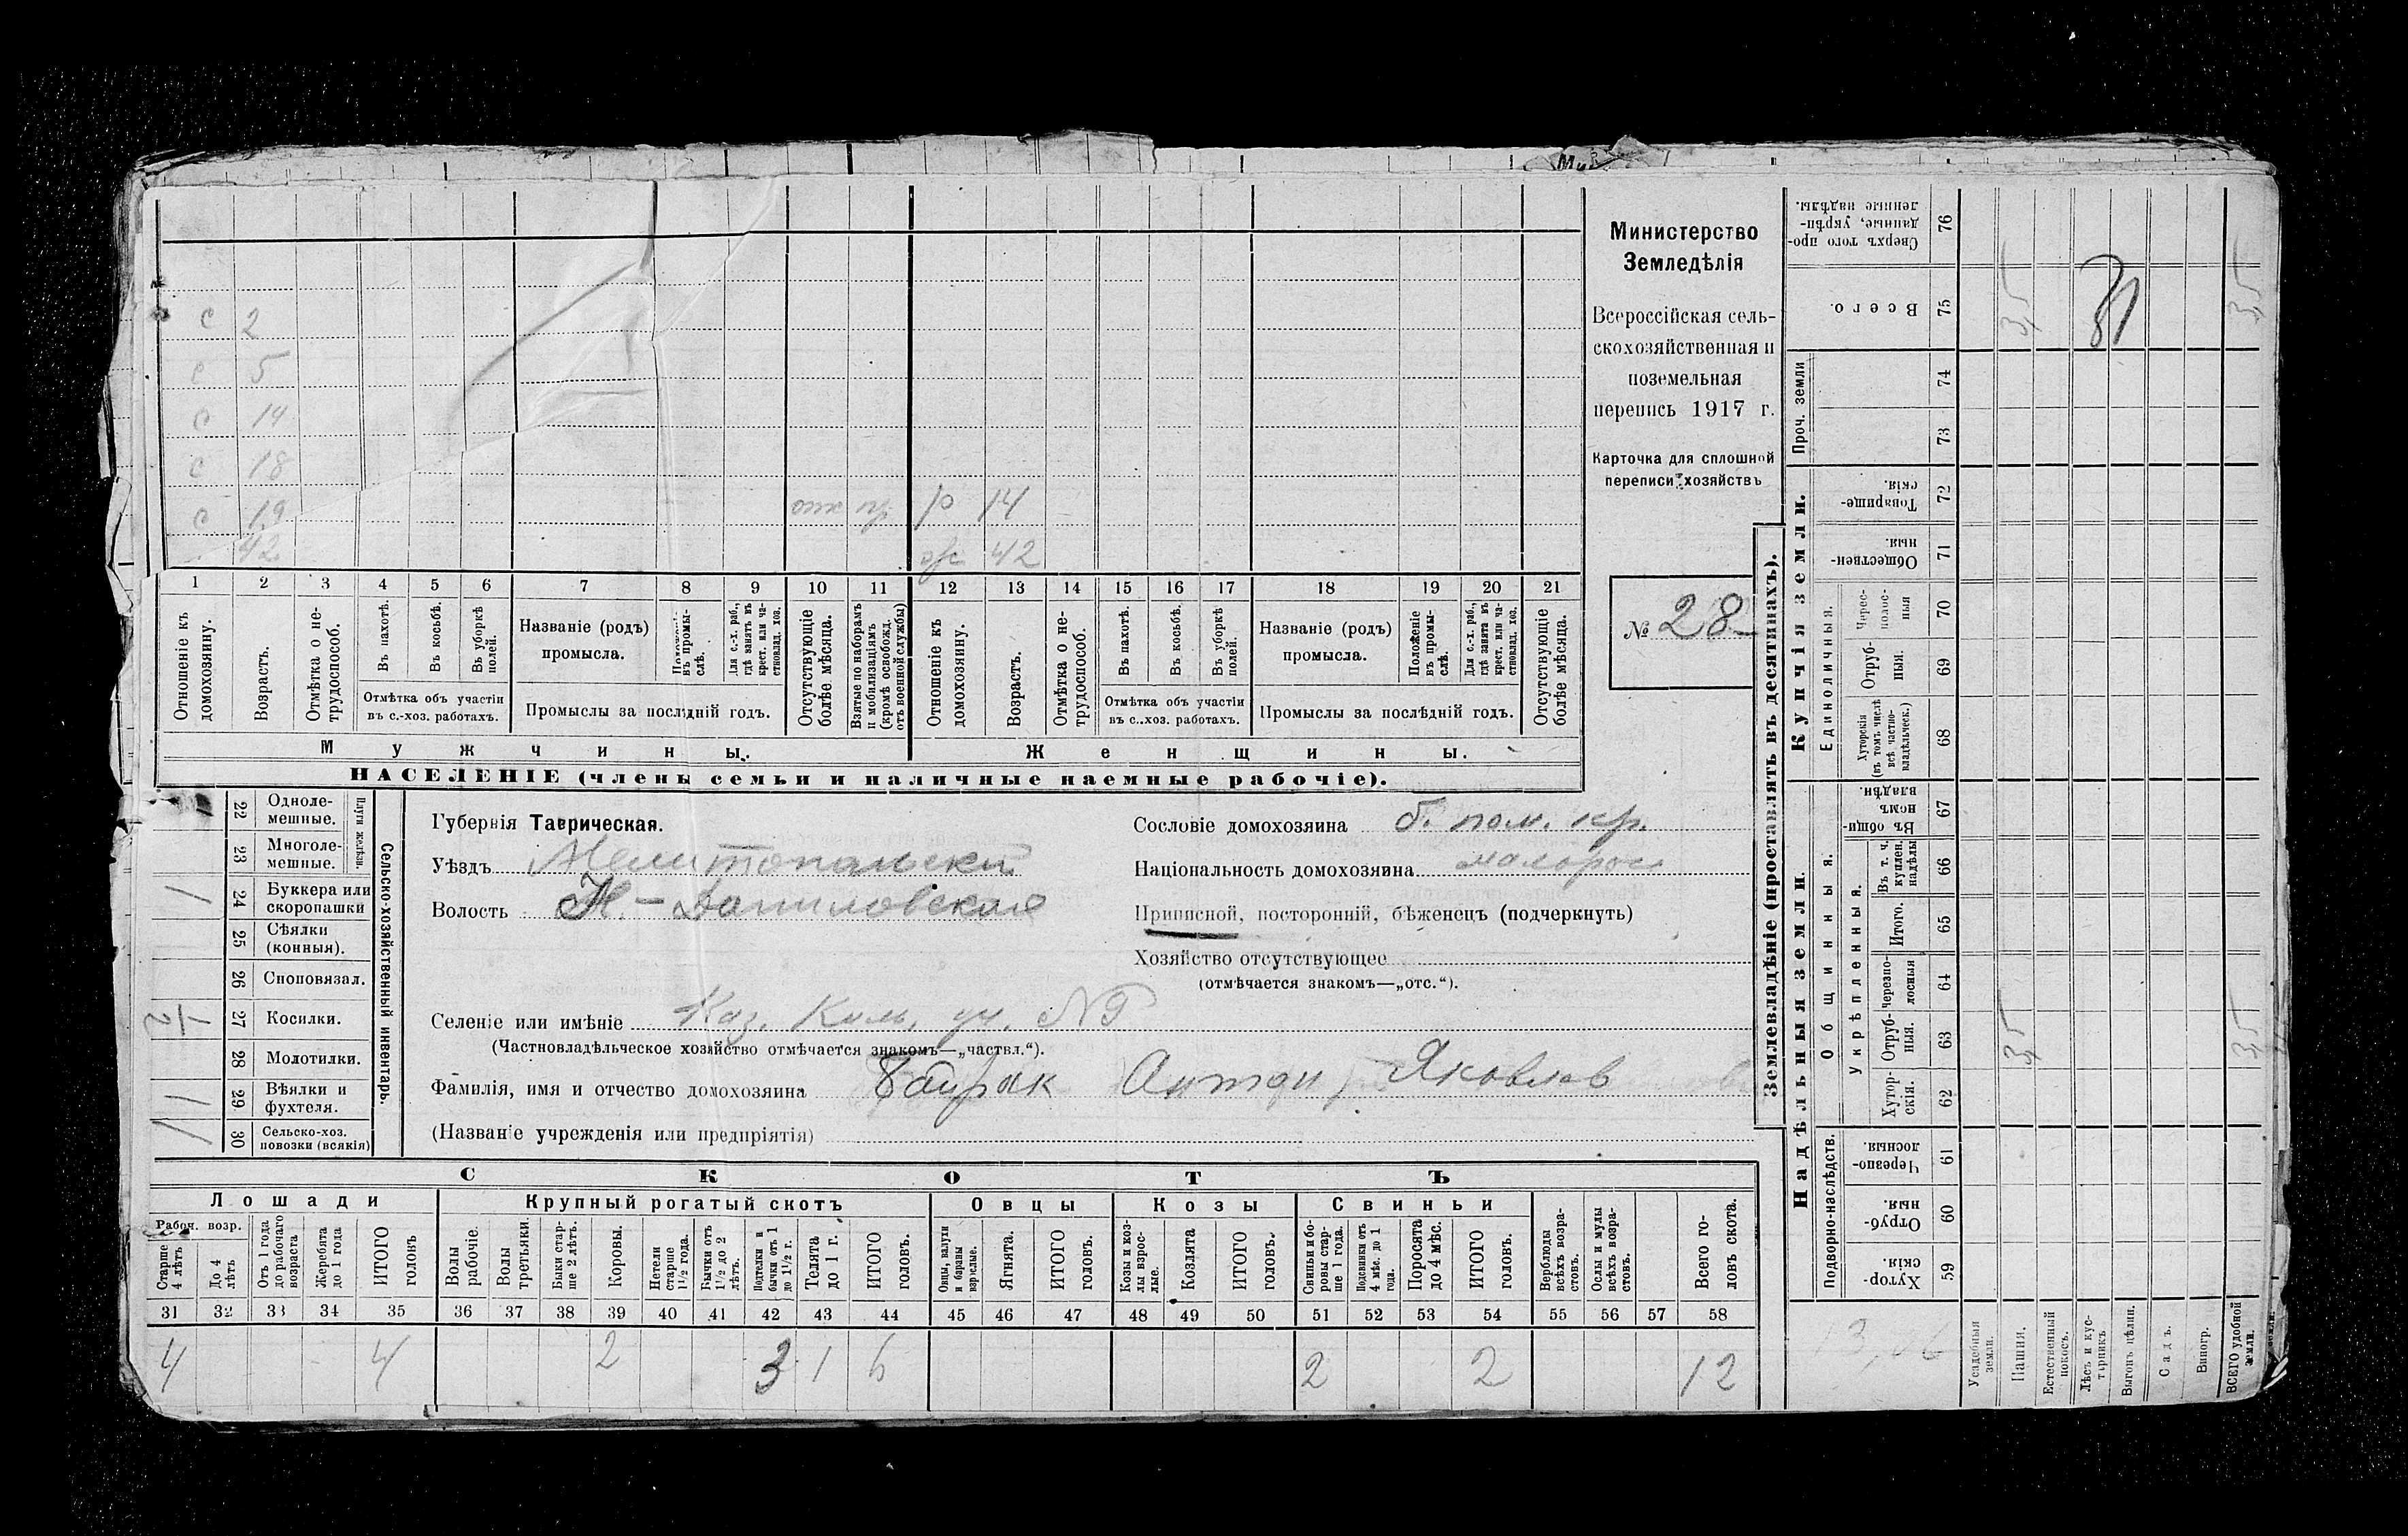 Министерство
Земледѣлія
Всероссійская сель-
скохозяйственная и
поземельная
перепись 1917 г.
Карточка для сплошной
переписи хозяйствъ
№ 28
с 2
с 5
с 14
с 18
с 19
42
14
42
1 2 3 4 5 6 7 8 9 10 11 12 13 14 15 16 17 18 19 20 21
Отношеніе къ домохозяину.
Возрастъ.
Отмѣтка о не-трудоспособ.
Въ пахотѣ.
Въ косьбѣ.
Въ уборкѣ полей.
Отмѣтка объ участіи
въ с.-хоз. работахъ.
Названіе (родъ)
промысла.
Положеніе въ промы-слѣ.
Для с.-х. раб., гдѣ занятъ въ крест. или ча-стновлад. хоз.
Промыслы за послѣдній годъ.
Отсутствующіе болѣе мѣсяца.
Взятые по наборамъ и мобилизаціямъ (кромѣ освобожд. отъ военной службы)
Отношеніе къ домохозяину.
Возрастъ.
Отмѣтка о не-трудоспособ.
Въ пахотѣ.
Въ косьбѣ.
Въ уборкѣ полей.
Отмѣтка объ участіи
въ с.-хоз. работахъ.
Названіе (родъ)
промысла.
Положеніе въ промы-слѣ.
Для с.-х. раб., гдѣ занята въ крест. или ча-стновлад. хоз.
Промыслы за послѣдній годъ.
Отсутствующіе болѣе мѣсяца.
Мужчины.
Женщины.
НАСЕЛЕНІЕ (члены семьи и наличные наемные рабочіе).
Сельско-хозяйственный инвентарь.
Плуги желѣзн.
22 Одноле-мешные.
23 Многоле-мешные.
1 24 Буккера или скоропашки
25 Сѣялки (конныя).
26 Сноповязал.
1/2 27 Косилки.
28 Молотилки.
1 29 Вѣялки и фухтеля.
1 30 Сельско-хоз. повозки (всякія)
Губернія Таврическая.
Уѣздъ Мелитопальскій
Волость Н.-Даниловская
Сословіе домохозяина б. пом. кр.
Національность домохозяина малорос
Приписной, посторонній, бѣженецъ (подчеркнуть)
Хозяйство отсутствующее
(отмѣчается знакомъ—„отс.“).
Селеніе или имѣніе Каз.
(Частновладѣльческое хозяйство отмѣчается знакомъ—„частвл.“).
Фамилія, имя и отчество домохозяина Байрак Антон Яковлев
(Названіе учрежденія или предпріятія)
СКОТЪ
Лошади Крупный рогатый скотъ Овцы Козы Свиньи
Рабоч. возр.
Старше 4 лѣтъ
До 4 лѣтъ
Отъ 1 года до рабочаго возраста
Жеребята до 1 года
ИТОГО головъ
Волы рабочіе.
Волы третьяки.
Быки стар-ше 2 лѣтъ.
Коровы.
Нетели старше 1½ года.
Бычки отъ 1½ до 2 лѣтъ.
Подтелки и бычки отъ 1 до 1½ г.
Телята до 1 г.
ИТОГО головъ.
Овцы, валухи и бараны взрослые.
Ягнята.
ИТОГО головъ.
Козы и коз-лы взрос-лые.
Козлята
ИТОГО головъ.
Свиньи и бо-ровы стар-ше 1 года.
Подсвинки отъ 4 мѣс. до 1 года.
Поросята до 4 мѣс.
ИТОГО головъ.
Верблюды всѣхъ возра-стовъ.
Ослы и мулы всѣхъ возра-стовъ.
Всего го-ловъ скота.
31 32 33 34 35 36 37 38 39 40 41 42 43 44 45 46 47 48 49 50 51 52 53 54 55 56 57 58
4 4 2 3 1 6 2 2 12
Землевладѣніе (проставлять въ десятинахъ).
Купчія земли.
Надѣльныя земли.
Сверхъ того про-данные, укрѣп-ленные надѣлы. 76
Всего. 75 3,5 3,5
Проч. земли 74
73
Товарище-скія. 72
Обществен-ныя. 71
Единоличныя.
Черес-полос-ныя 70
Отруб-ныя. 69
Хуторскія (въ томъ числѣ всѣ частно-владѣльческ.) 68
Общинныя.
Въ общи-номъ владѣн. 67
Укрѣпленныя.
Въ т. ч. куплен. надѣлы 66
Итого. 65
Черезпо-лосныя 64
Отруб-ныя. 63 3,5 3,5
Хутор-скія. 62
Подворно-наслѣдств.
Черезпо-лосныя 61
Отруб-ныя. 60
Хутор-скія. 59
Усадебныя земли.
Пашня.
Естественный покосъ.
Лѣсъ и кус-тарникъ
Выгонъ цѣлин.
Садъ.
Виногр.
ВСЕГО удобной земли.